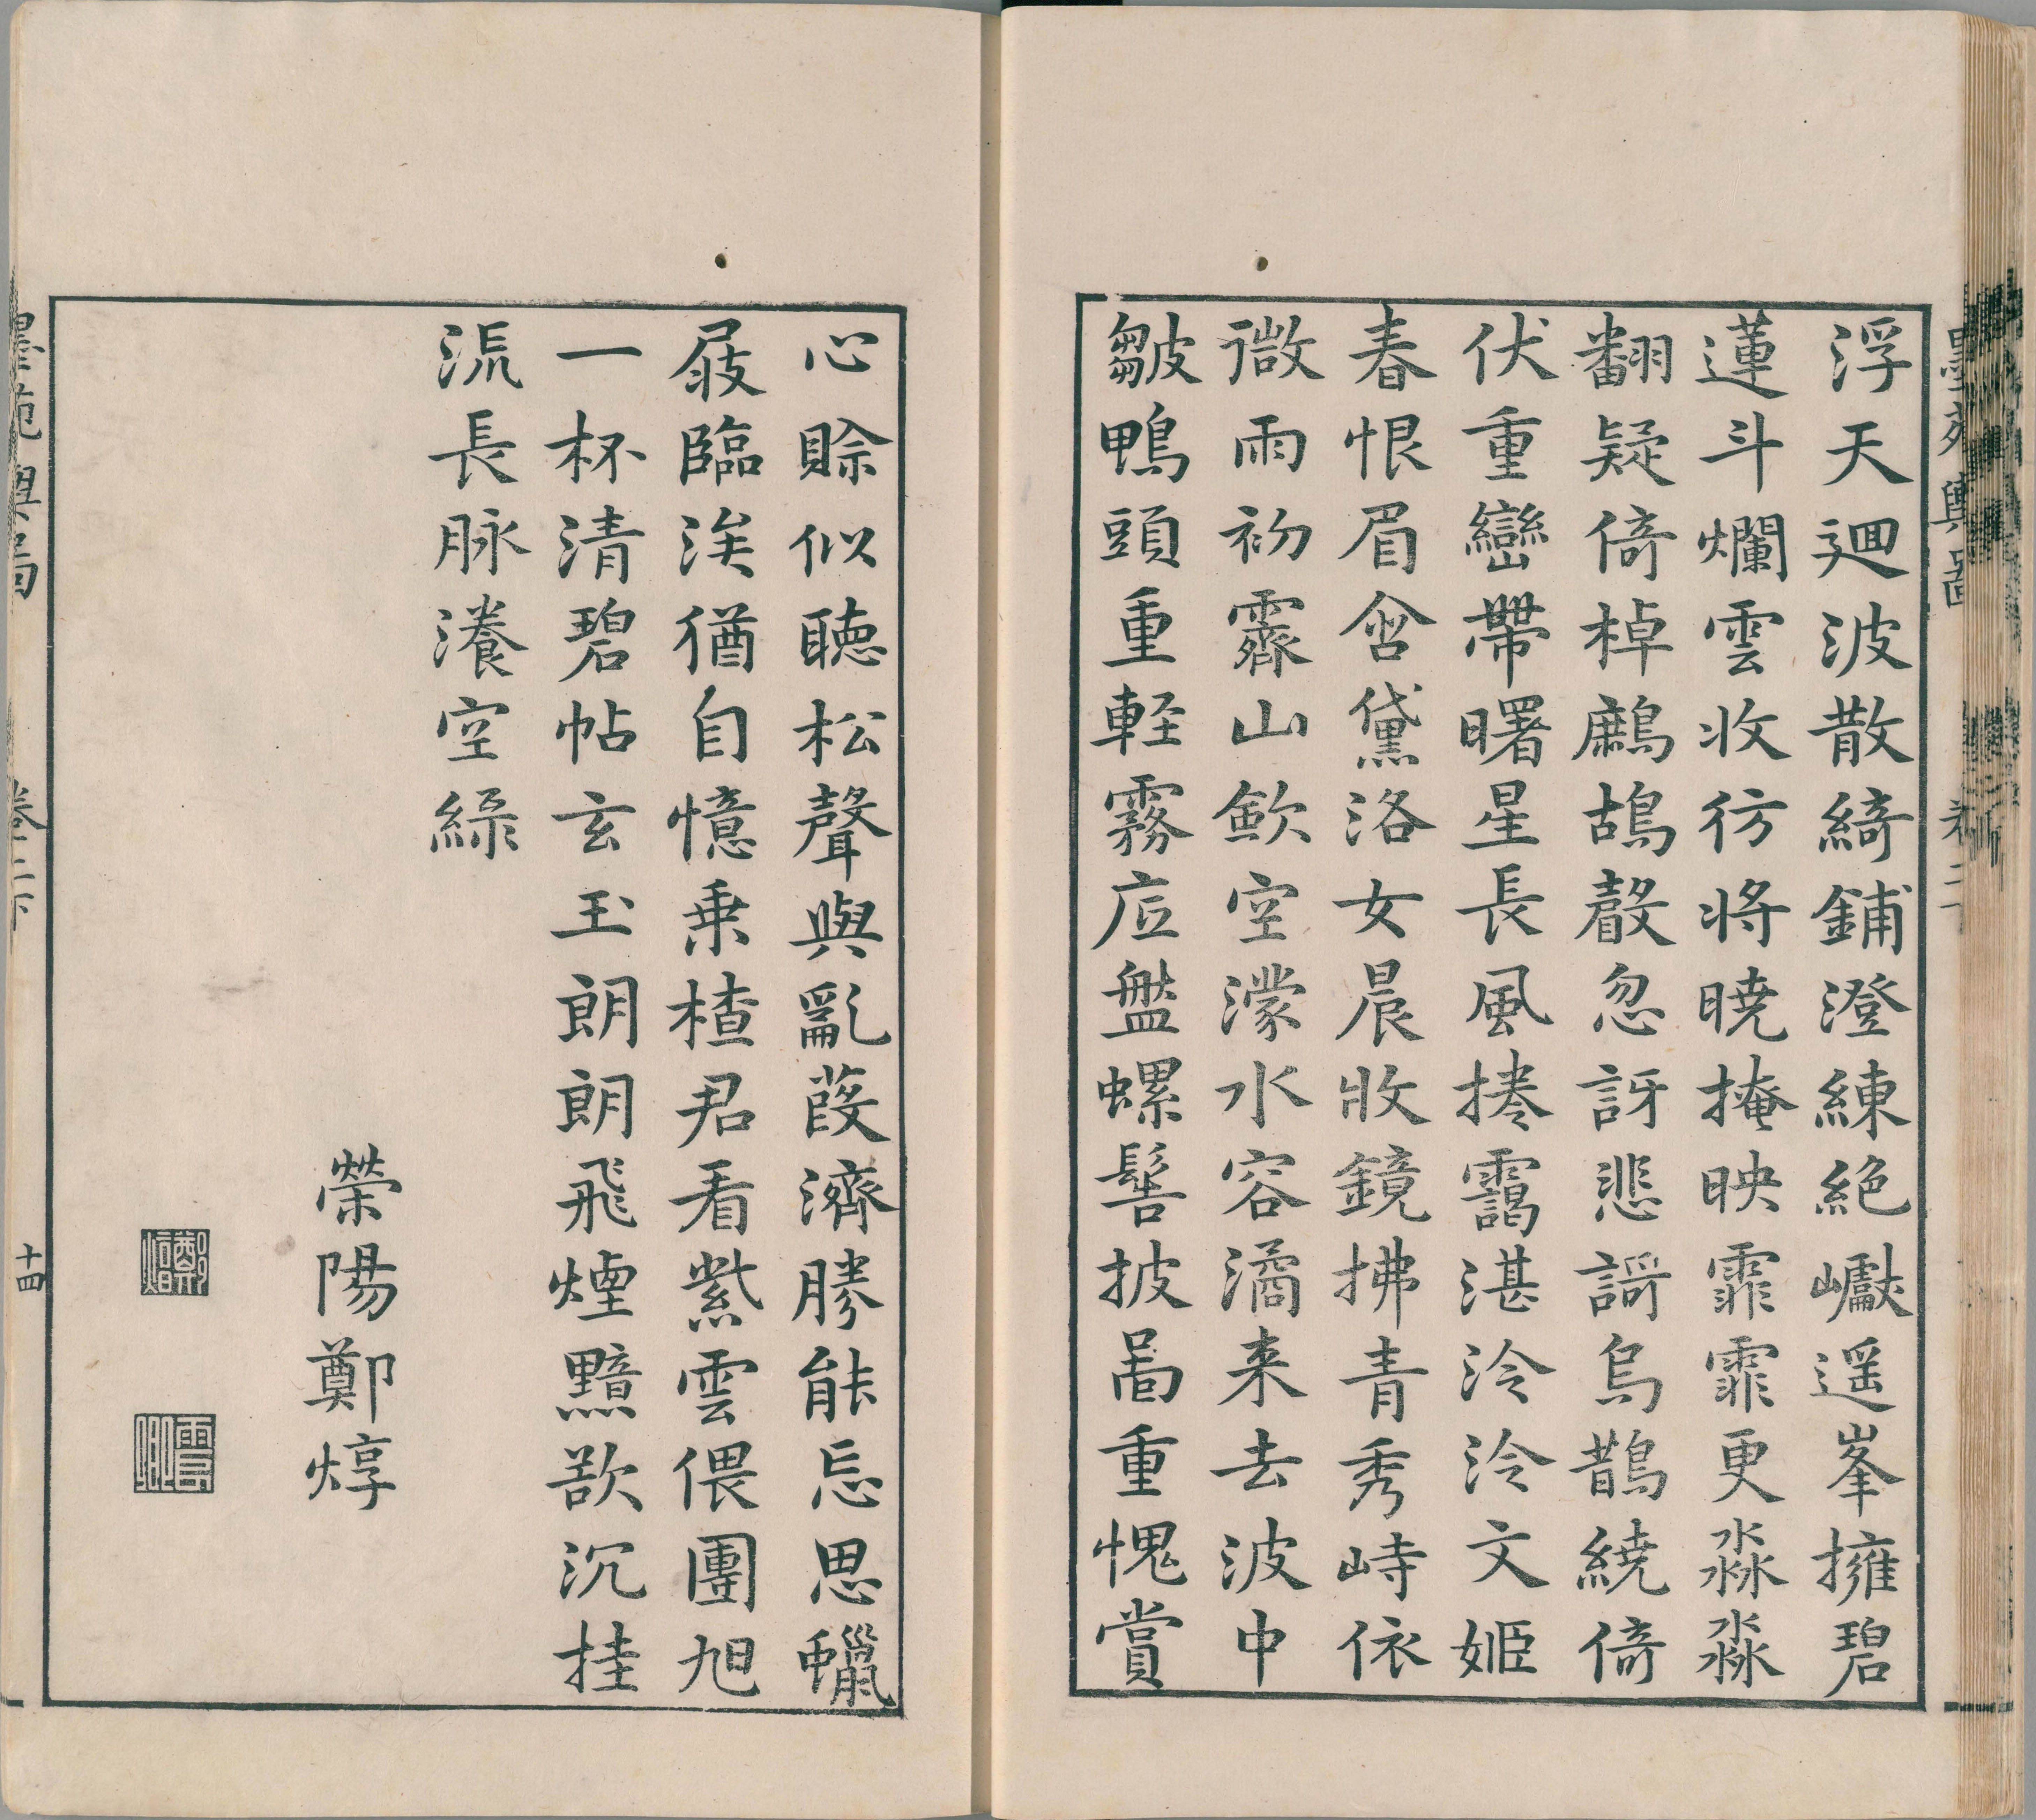 浮天廻波散綺鋪澄練絶巘遥峯擁碧
蓮斗爛雲收彷將曉掩映霏霏更淼淼
翻疑倚棹鷓鴣聲忽訝悲謌烏鵲繞倚
伏重巒帶曙星長風捲靄湛泠泠文姬
春恨眉含黛洛女晨妝鏡拂青秀峙依
微雨初霽山欽空濛水容潏来去波中
皺鴨頭重輕霧庢盤螺髻披啚重愧賞
心賒似聽松聲與亂葭濟勝能忘思蠟
屐臨涘猶自憶乗楂君看紫雲偎團旭
一杯清碧帖玄玉朗朗飛煙黯欲沉挂
流長脉瀁空緑
滎陽鄭焞
鄭焞
雲卿
墨苑輿啚
卷二下
十四